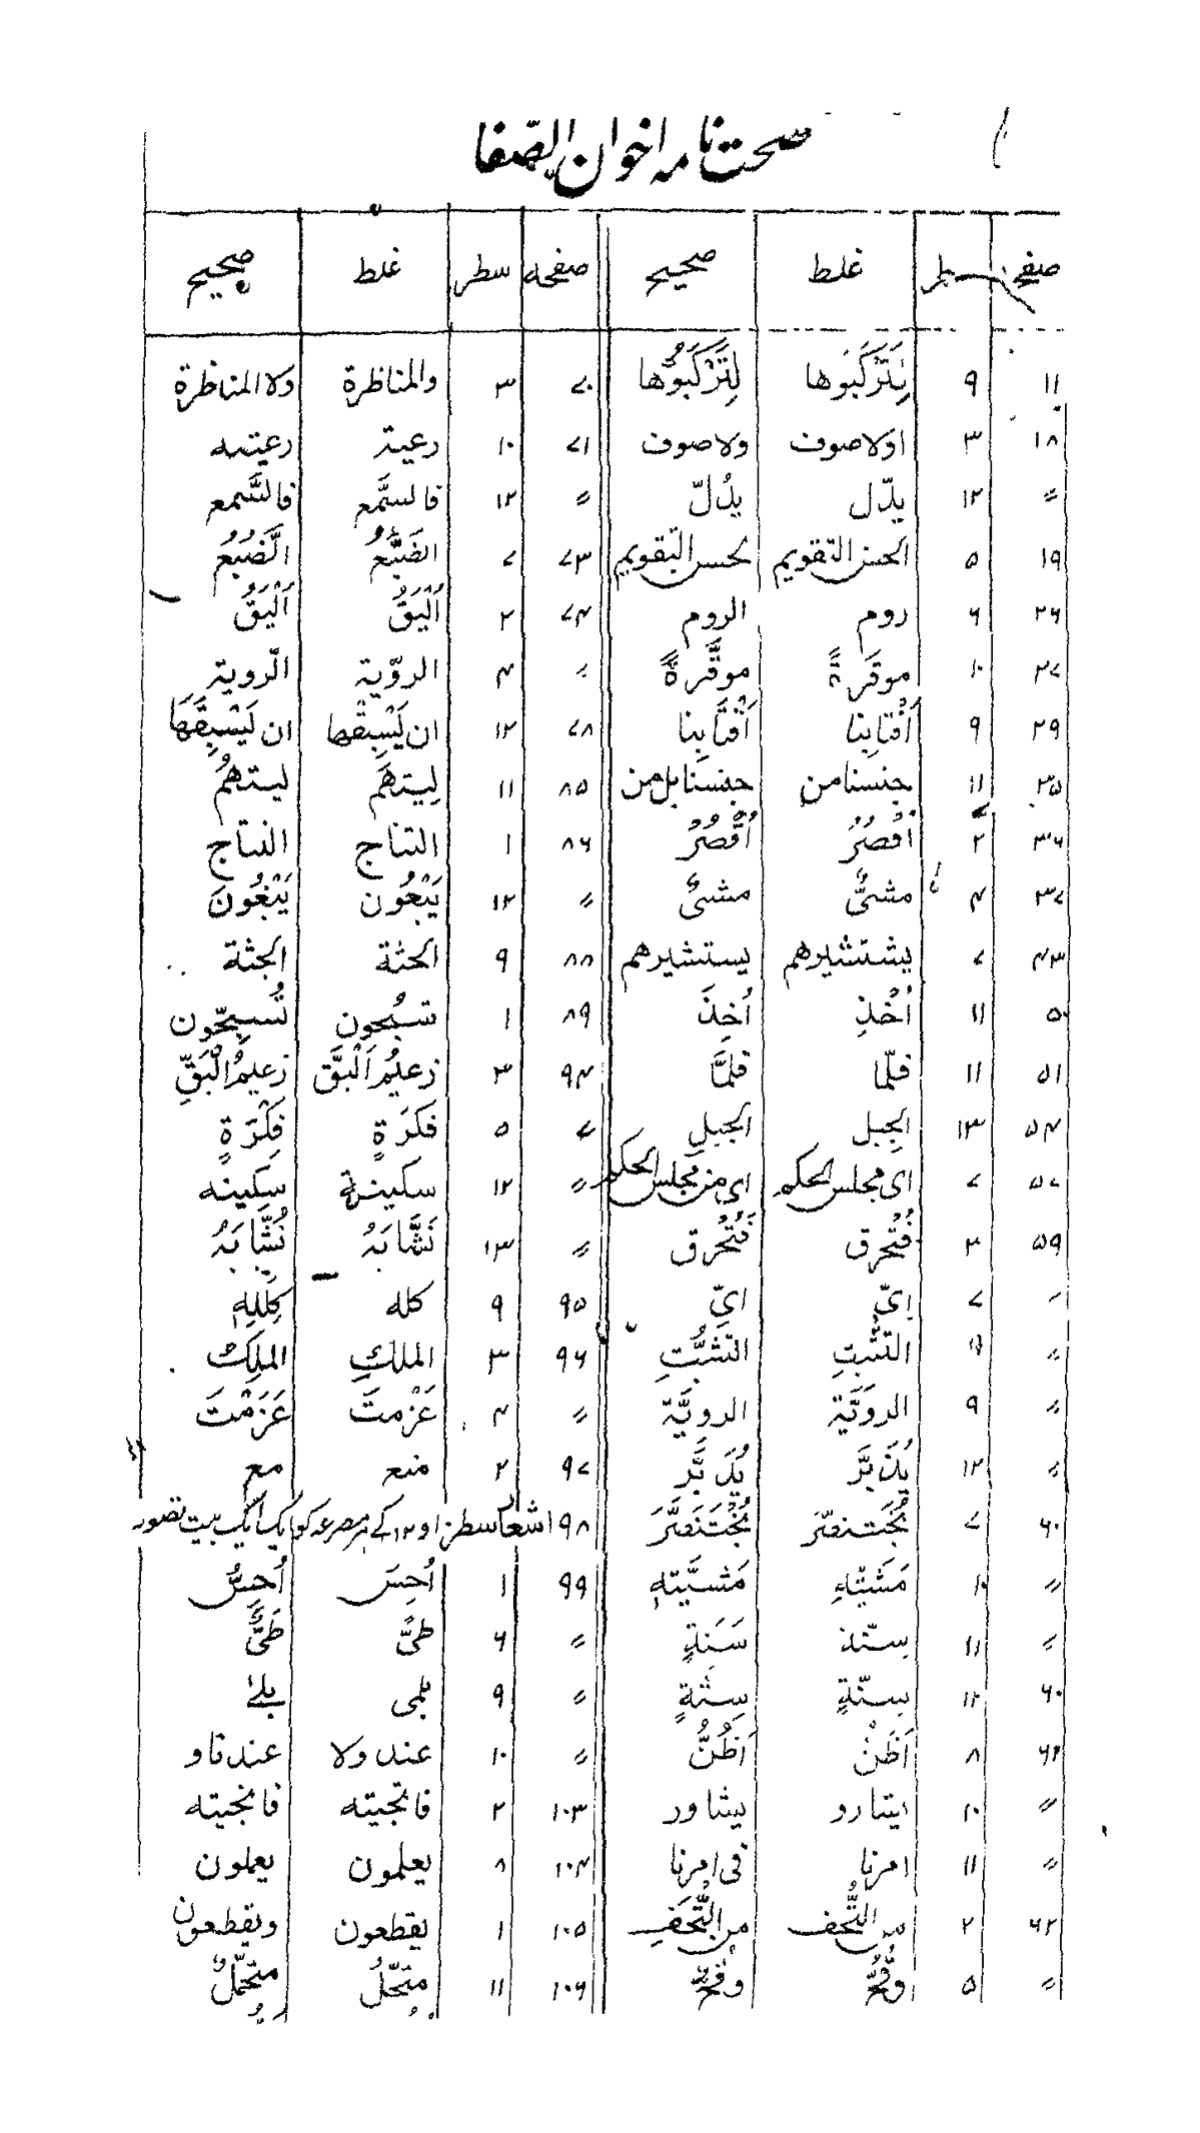 صحت نامہ اخوان الصّفا
صفحہ سطر غلط صحیح صفحہ سطر غلط صحیح
۱۱ ۹ لِتَرَكَبُوها لِتَرْكَبُوُها ۷۰ ۳ والمناظرة ولا المناظرة
۱۸ ۳ اولاصوف ولاصوف ۷۱ ۱۰ رعیة رعیته
〃 ۱۲ یدّل یدُلّ 〃 ۱۲ فالسَّمع فالتَّسمع
۱۹ ۵ الحسن التقویم لحسن التقویم ۷۳ ۷ الضَبُّعُ الَّضَبُعُ
۲۶ ۶ روم الروم ۷۴ ۲ اَلْیَقُ اَلْیَقَ
۲۷ ۱۰ موقَرةً موقَّرةً 〃 ۴ الروّیة الّرویة
۲۹ ۹ اَفْتابِنا اَفتَّابِنا ۷۸ ۱۲ ان یَسْبِقْها ان یَسْبِقَهَا
۳۵ ۱۱ جنسنا من جنسنا بل من ۸۵ ۱۱ لِیتَهَم لیتهُم
۳۶ ۲ اُقصُرُ اُقْصُرُ ۸۶ ۱ التناج النتاج
۳۷ ۴ مشیٌّ مشیٌ 〃 ۱۲ یَبْغُون یَبْغُونَ
۴۳ ۷ یشتشیرهم یستشیرهم ۸۸ ۹ الحثة الجثة
۵۰ ۱۱ اُخْذِ اُخِذَ ۸۹ ۱ تسبُحون تُسبِحّون
۵۱ ۱۱ فلّما فلمَّا ۹۴ ۳ زعیمُ اَلْبَقَّ زعیمُ الْبَقِّ
۵۴ ۱۳ الجِبل الجبلِ 〃 ۵ فَكَرَةٍ فِكْرَةٍ
۵۷ ۷ ای مجلس الحكم ای من مجلس الحكم 〃 ۱۲ سكینة سكینه
۵۹ ۳ فُتحرق فَتُحرق 〃 ۱۳ نَشَّابَهُ نُشَّابَهُ
〃 ۷ اِیّ ایِّ ۹۵ ۹ كله كِلْلِه
〃 التثَّبتِ التثبُّتِ ۹۶ ۳ الملكِ الملِكَ
〃 ۹ الروَیَّة الرویَّة 〃 ۴ عَزْمتَ عَزَمْتَ
〃 ۱۲ یُدَبَّر یُدَبَّر ۹۷ ۲ منع مع
۶۰ ۷ بُخَت نصّر بُخْتَنَصَّرَ ۹۸ اشعار سطر ۱ و ۱۲ كے ہر مصرعہ كو ایك ایك بیت تصور
〃 ۱۰ مَشیّتاءِ مَشیَّتِهٖ ۹۹ ۱ اُحِسَ اُحِسُّ
〃 ۱۱ سِتّة سَنَةٍ 〃 ۶ طیَّ طَیَّ
۶۰ ۱۲ سِنّةٍ سِتّةٍ 〃 ۹ بلمی بلےٰ
۶۲ ۸ اَظَنْ اَظُنُّ 〃 ۱۰ عند ولا عند نا و
〃 ۱۰ یتارو یشاور ۱۰۳ ۲ فانجیته فانجیته
〃 ۱۱ امرنا فی امرنا ۱۰۴ ۸ یعلمون یعملون
۶۲ ۲ التُّحف من التُّحَفِ ۱۰۵ ۱ یقطعون ویقطعون
〃 ۵ ۱۰۶ ۱۱ متحّلُ متحمّلُ